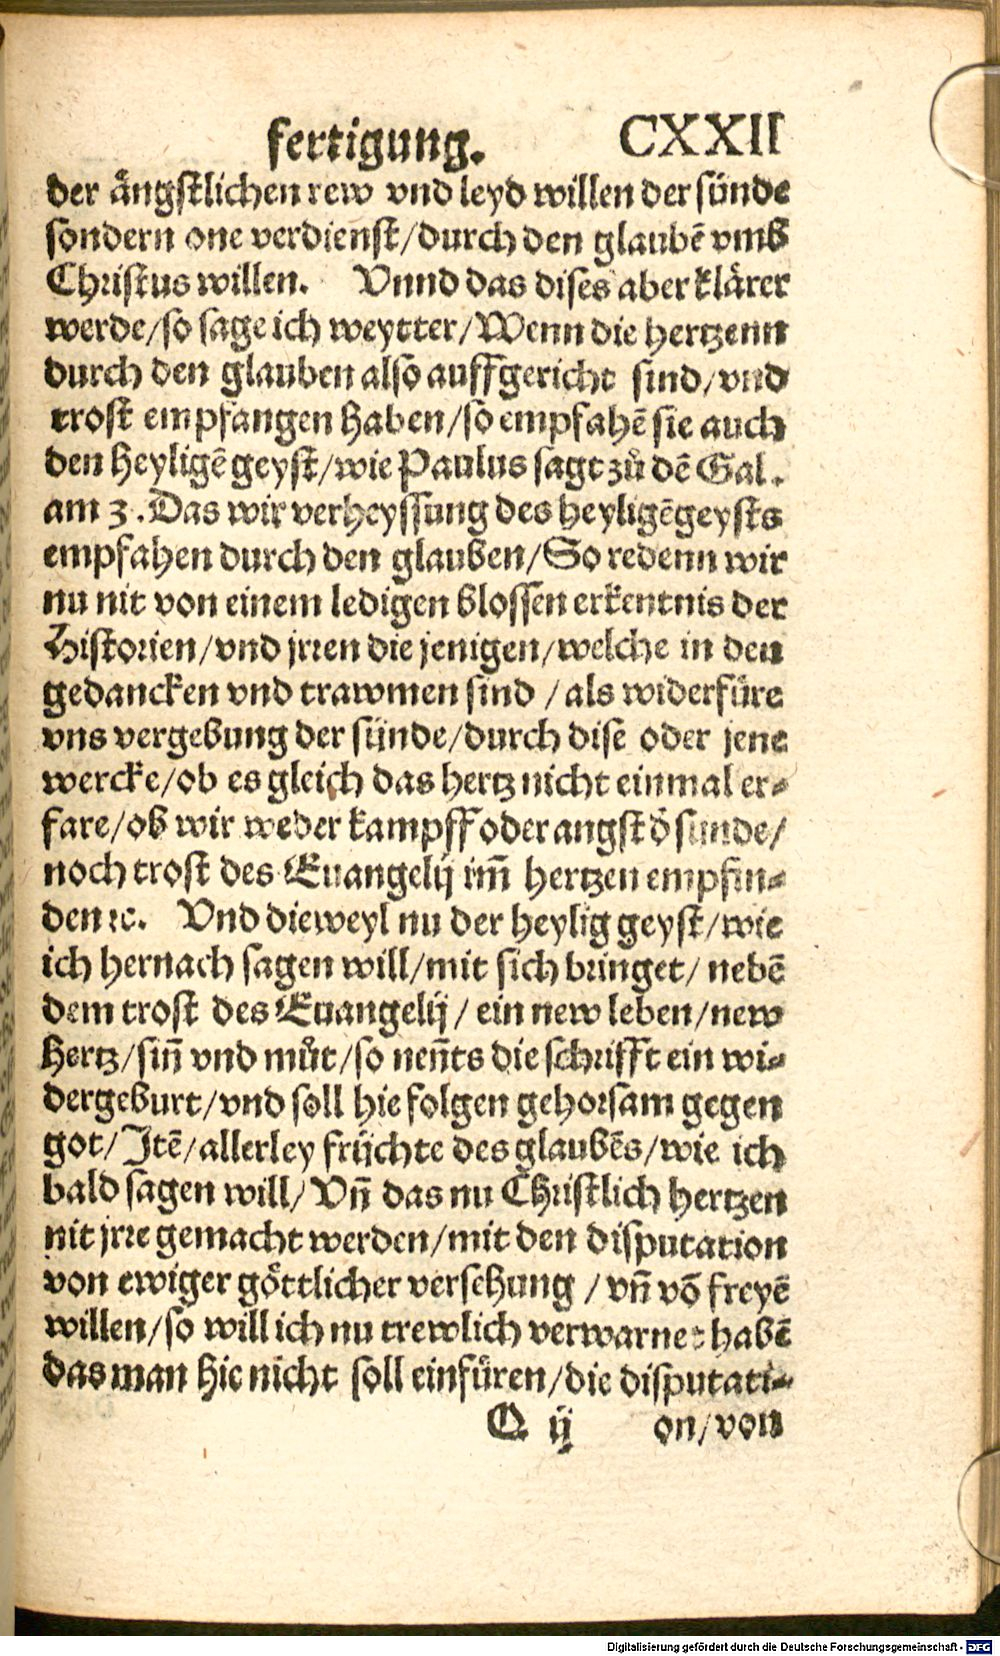 fertigung. CXXII
der ängstlichen rew vnd leyd willen der sünde
sondern one verdienst/durch den glaubē vmb
Christus willen. Vnnd das dises aber klärer
werde/so sage ich weytter/Wenn die hertzenn
durch den glauben also auffgericht sind/vnd
trost empfangen haben/so empfahē sie auch
den heyligē geyst/wie Paulus sagt zů dē Gal.
am 3. Das wir verheyssung des heyligēgeysts
empfahen durch den glauben/So redenn wir
nu nit von einem ledigen blossen erkentnis der
Historien/vnd jrren die jenigen/welche in den
gedancken vnd trawmen sind /als widerfüre
vns vergebung der sünde/durch dise oder jene
wercke/ob es gleich das hertz nicht einmal er-
fare/ob wir weder kampff oder angst d̄ sunde/
noch trost des Euangelij im̄ hertzen empfin-
den ꝛc. Vnd dieweyl nu der heylig geyst/wie
ich hernach sagen will/mit sich bringet/ nebē
dem trost des Euangelij/ ein new leben/new
hertz/sin̄ vnd můt/so nen̄ts die schrifft ein wi-
dergeburt/vnd soll hie folgen gehorsam gegen
got/Jtē/allerley früchte des glaubēs/wie ich
bald sagen will/Vn̄ das nu Christlich hertzen
nit jrre gemacht werden/mit den disputation
von ewiger göttlicher versehung /vn̄ vō freyē
willen/so will ich nu trewlich verwarnet habē
das man hie nicht soll einfüren/die disputati-
Q ij on/von
Digitalisierung gefördert durch die Deutsche Forschungsgemeinschaft - DFG